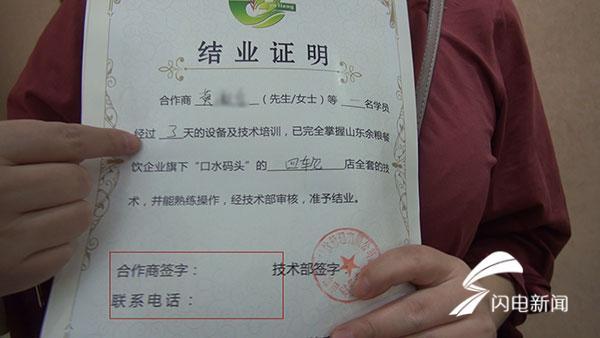 结业证明
合作商 黄 (先生/女士) 等 一 名学员
经过 3 天的设备及技术培训，已完全掌握山东余粮餐
饮企业旗下“口水码头”的 店全套的技
术，并能熟练操作，经技术部审核，准予结业。
合作商签字： 技术部签字
联系电话：
闪电新闻